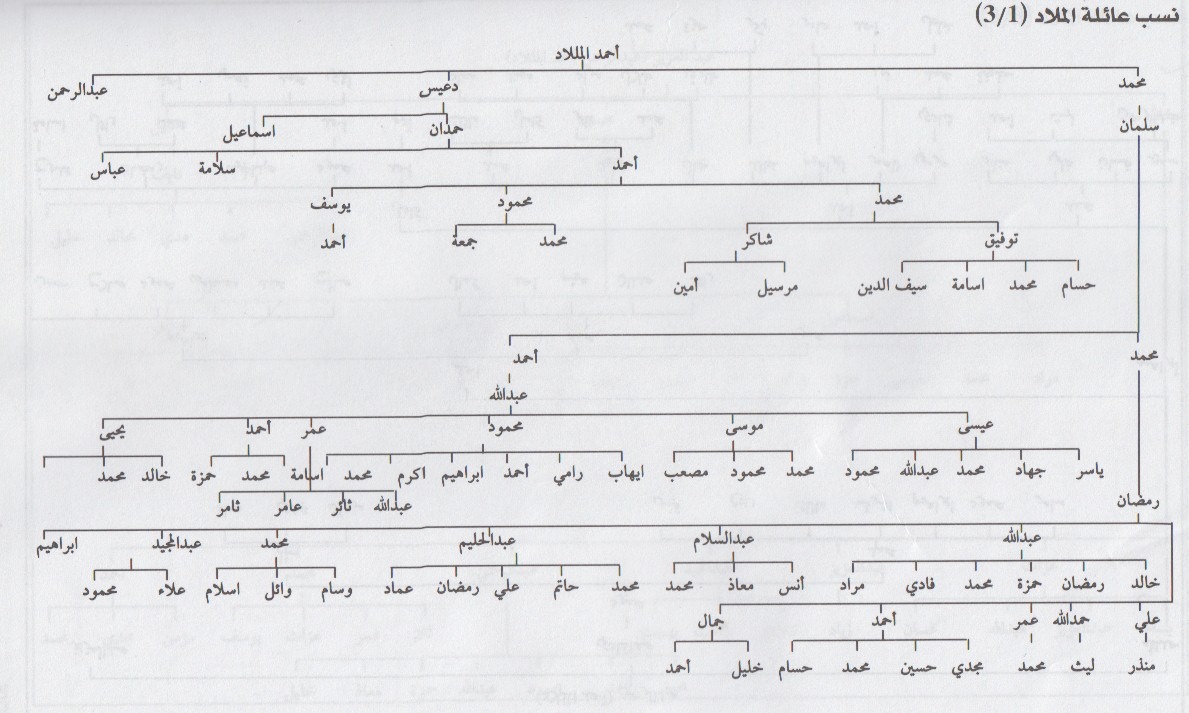 نسب عائلة الملاد (3/1)
أحمد المللاد
محمد دعيس عبدالرحمن
سلمان حمدان اسماعيل
أحمد سلامة عباس
محمد محمود يوسف
توفيق شاكر محمد جمعة أحمد
حسام محمد اسامة سيف الدين مرسيل أمين
محمد أحمد
عبدالله
عيسى موسى محمود عمر أحمد يحيى
ياسر جهاد محمد عبدالله محمود محمد محمود مصعب ايهاب رامي أحمد ابراهيم اكرم محمد اسامة محمد حمزة خالد محمد
رمضان عبدالله ثائر عامر ثامر
عبدالله عبدالسلام عبدالحليم محمد عبدالمجيد ابراهيم
خالد رمضان حمزة محمد فادي مراد أنس معاذ محمد محمد حاتم علي رمضان عماد وسام وائل اسلام علاء محمود
علي حمدالله عمر أحمد جمال
منذر ليث محمد مجدي حسين محمد حسام خليل أحمد